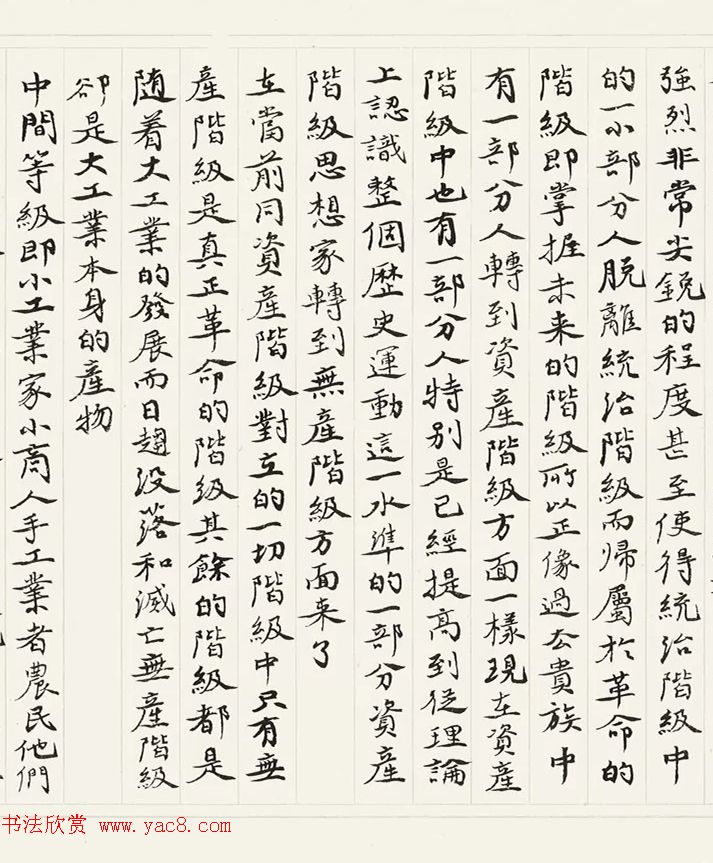 強烈非常尖鋭的程度甚至使得統治階級中
的一小部分人脱離統治階級而帰屬於革命的
階級即掌握未来的階級所以正像過去貴族中
有一部分人轉到資産階級方面一樣現在資産
階級中也有一部分人特別是已經提高到從理論
上認識整個歷史運動這一水準的一部分資産
階級思想家轉到無産階級方面来了
在當前同資産階級對立的一切階級中只有無
産階級是真正革命的階級其餘的階級都是
随着大工業的發展而日趨没落和滅亡無産階級
卻是大工業本身的産物
中間等級即小工業家小商人手工業者農民他們
书法欣赏 www.yac8.com